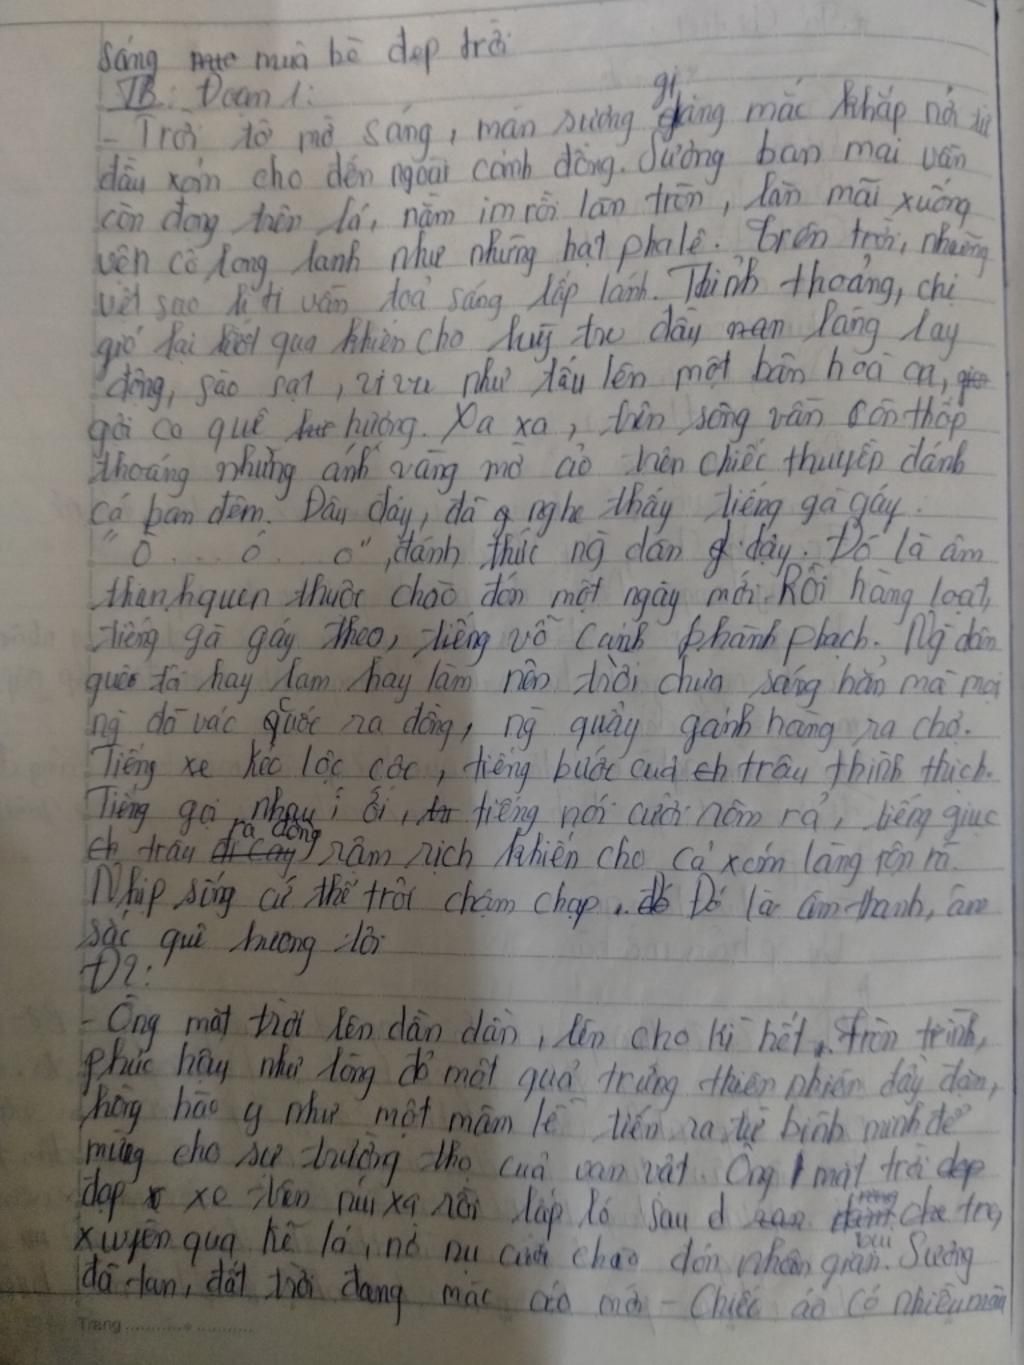 sáng mùa hè đẹp trời
TB: Đoạn 1:
- Trời tờ mờ sáng, màn sương giăng mắc khắp nơi từ
đầu xóm cho đến ngoài cánh đồng. Sương ban mai vẫn
còn đọng trên lá, nằm im rồi lăn tròn, lăn mãi xuống
vên cỏ long lanh như những hạt pha lê. Trên trời, những
vệt sao li ti vẫn toả sáng lấp lánh. Thỉnh thoảng, chị
gió lại lướt qua khiến cho luỹ tre đầy làng lay
động, sào sạt, vi vu như tấu lên một bản hoà ca,
gời ca quê hương. Xa xa, trên sông vẫn còn thấp
thoáng những ánh vàng mờ ảo trên chiếc thuyền đánh
cá ban đêm. Đâu đây, đã nghe thấy tiếng gà gáy.
"Ò... ó... o", đánh thức ng dân dậy. Đó là âm
thanh quen thuộc chào đón một ngày mới. Rồi hàng loạt,
tiếng gà gáy theo, tiếng vỗ cánh phành phạch. Ng dân
quê tôi hay lam hay làm nên trời chưa sáng hẳn mà mọi
ng đã vác quốc ra đồng, ng quẩy gánh hàng ra chợ.
Tiếng xe kéo lộc cộc, tiếng bước của ch trâu thình thịch.
Tiếng gọi nhau í ới, tiếng nói cười rôm rả, tiếng giục
ch trâu ra đồng rầm rịch khiến cho cả xóm làng rộn rã.
Nhịp sống cứ thế trôi chậm chạp. Đó là âm thanh, âm
sắc quê hương tôi
Đ2:
- Ông mặt trời lên dần dần, lên cho kì hết. Tròn trĩnh,
phúc hậu như lòng đỏ một quả trứng thiên nhiên đầy đặn,
hồng hào y như một mâm lễ tiến ra từ bình minh để
mừng cho sự trường thọ của vạn vật. Ông mặt trời
đạp xe trên núi xa rồi lấp ló sau rặng tre,
xuyên qua kẽ lá, nở nụ cười chào đón nhân gian. Sương
đã tan, đất trời đang mặc áo mới - Chiếc áo có nhiều màu
Trang